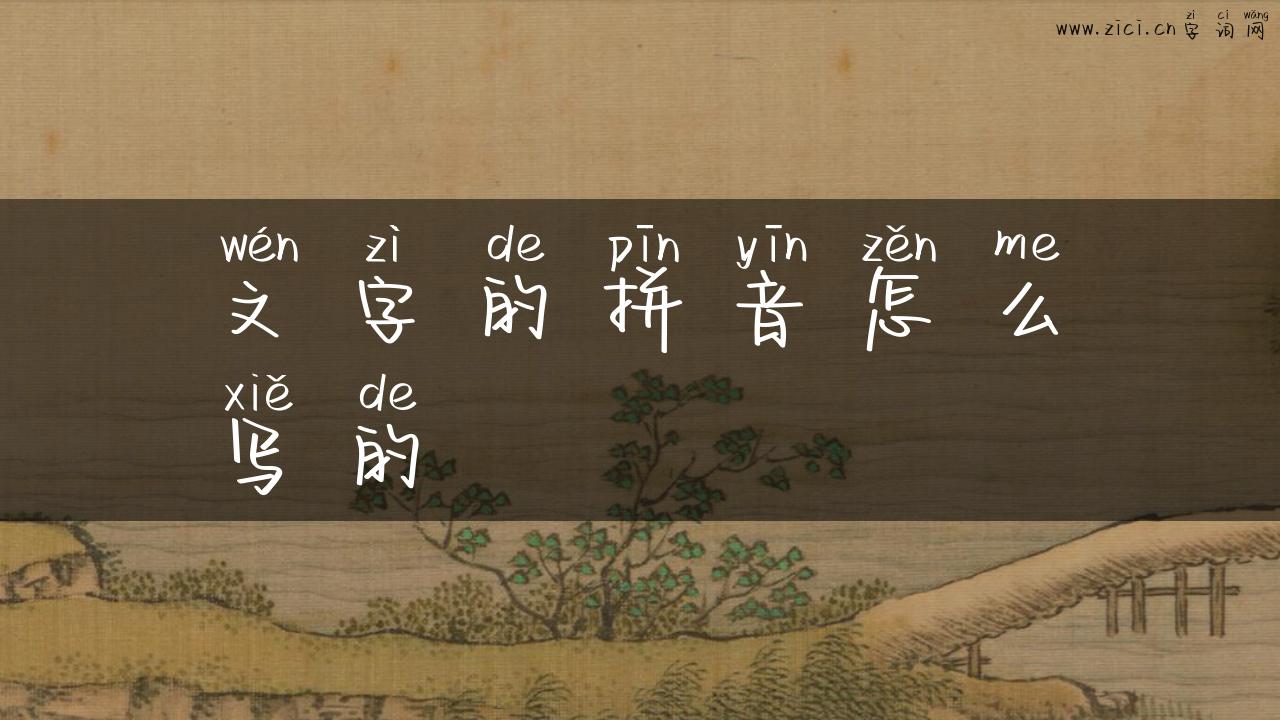 zì cí wǎng
www.zici.cn 字 词 网
wén zì de pīn yīn zěn me
文 字 的 拼 音 怎 么
xiě de
写 的